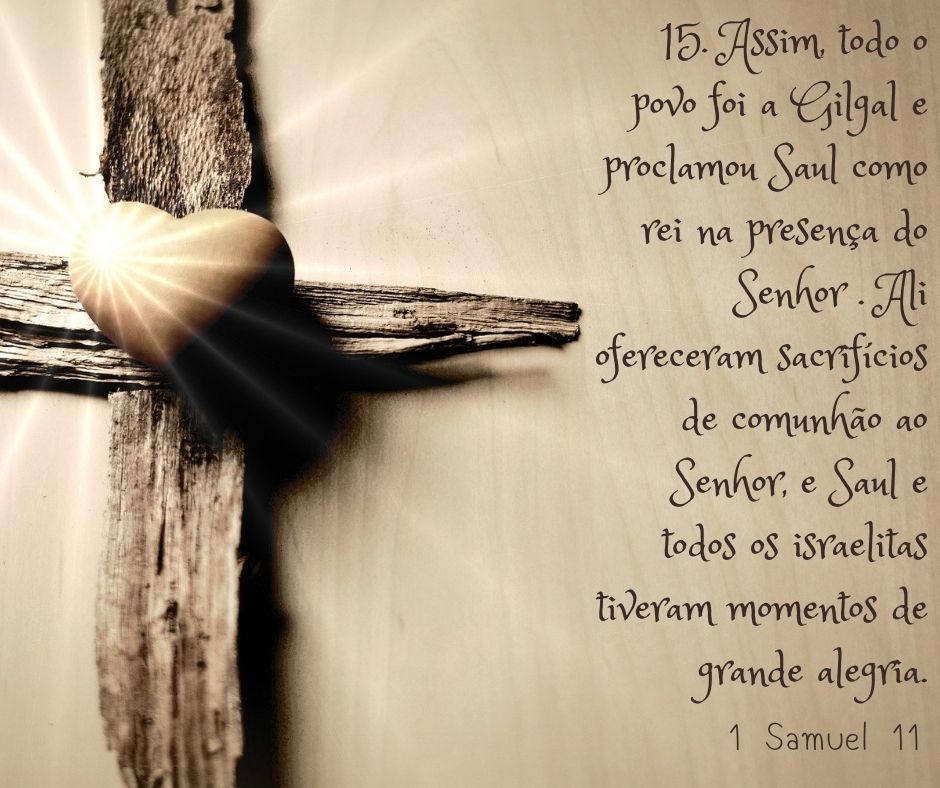 15. Assim, todo o
povo foi a Gilgal e
proclamou Saul como
rei na presença do
Senhor . Ali
ofereceram sacrifícios
de comunhão ao
Senhor, e Saul e
todos os israelitas
tiveram momentos de
grande alegria.
1 Samuel 11